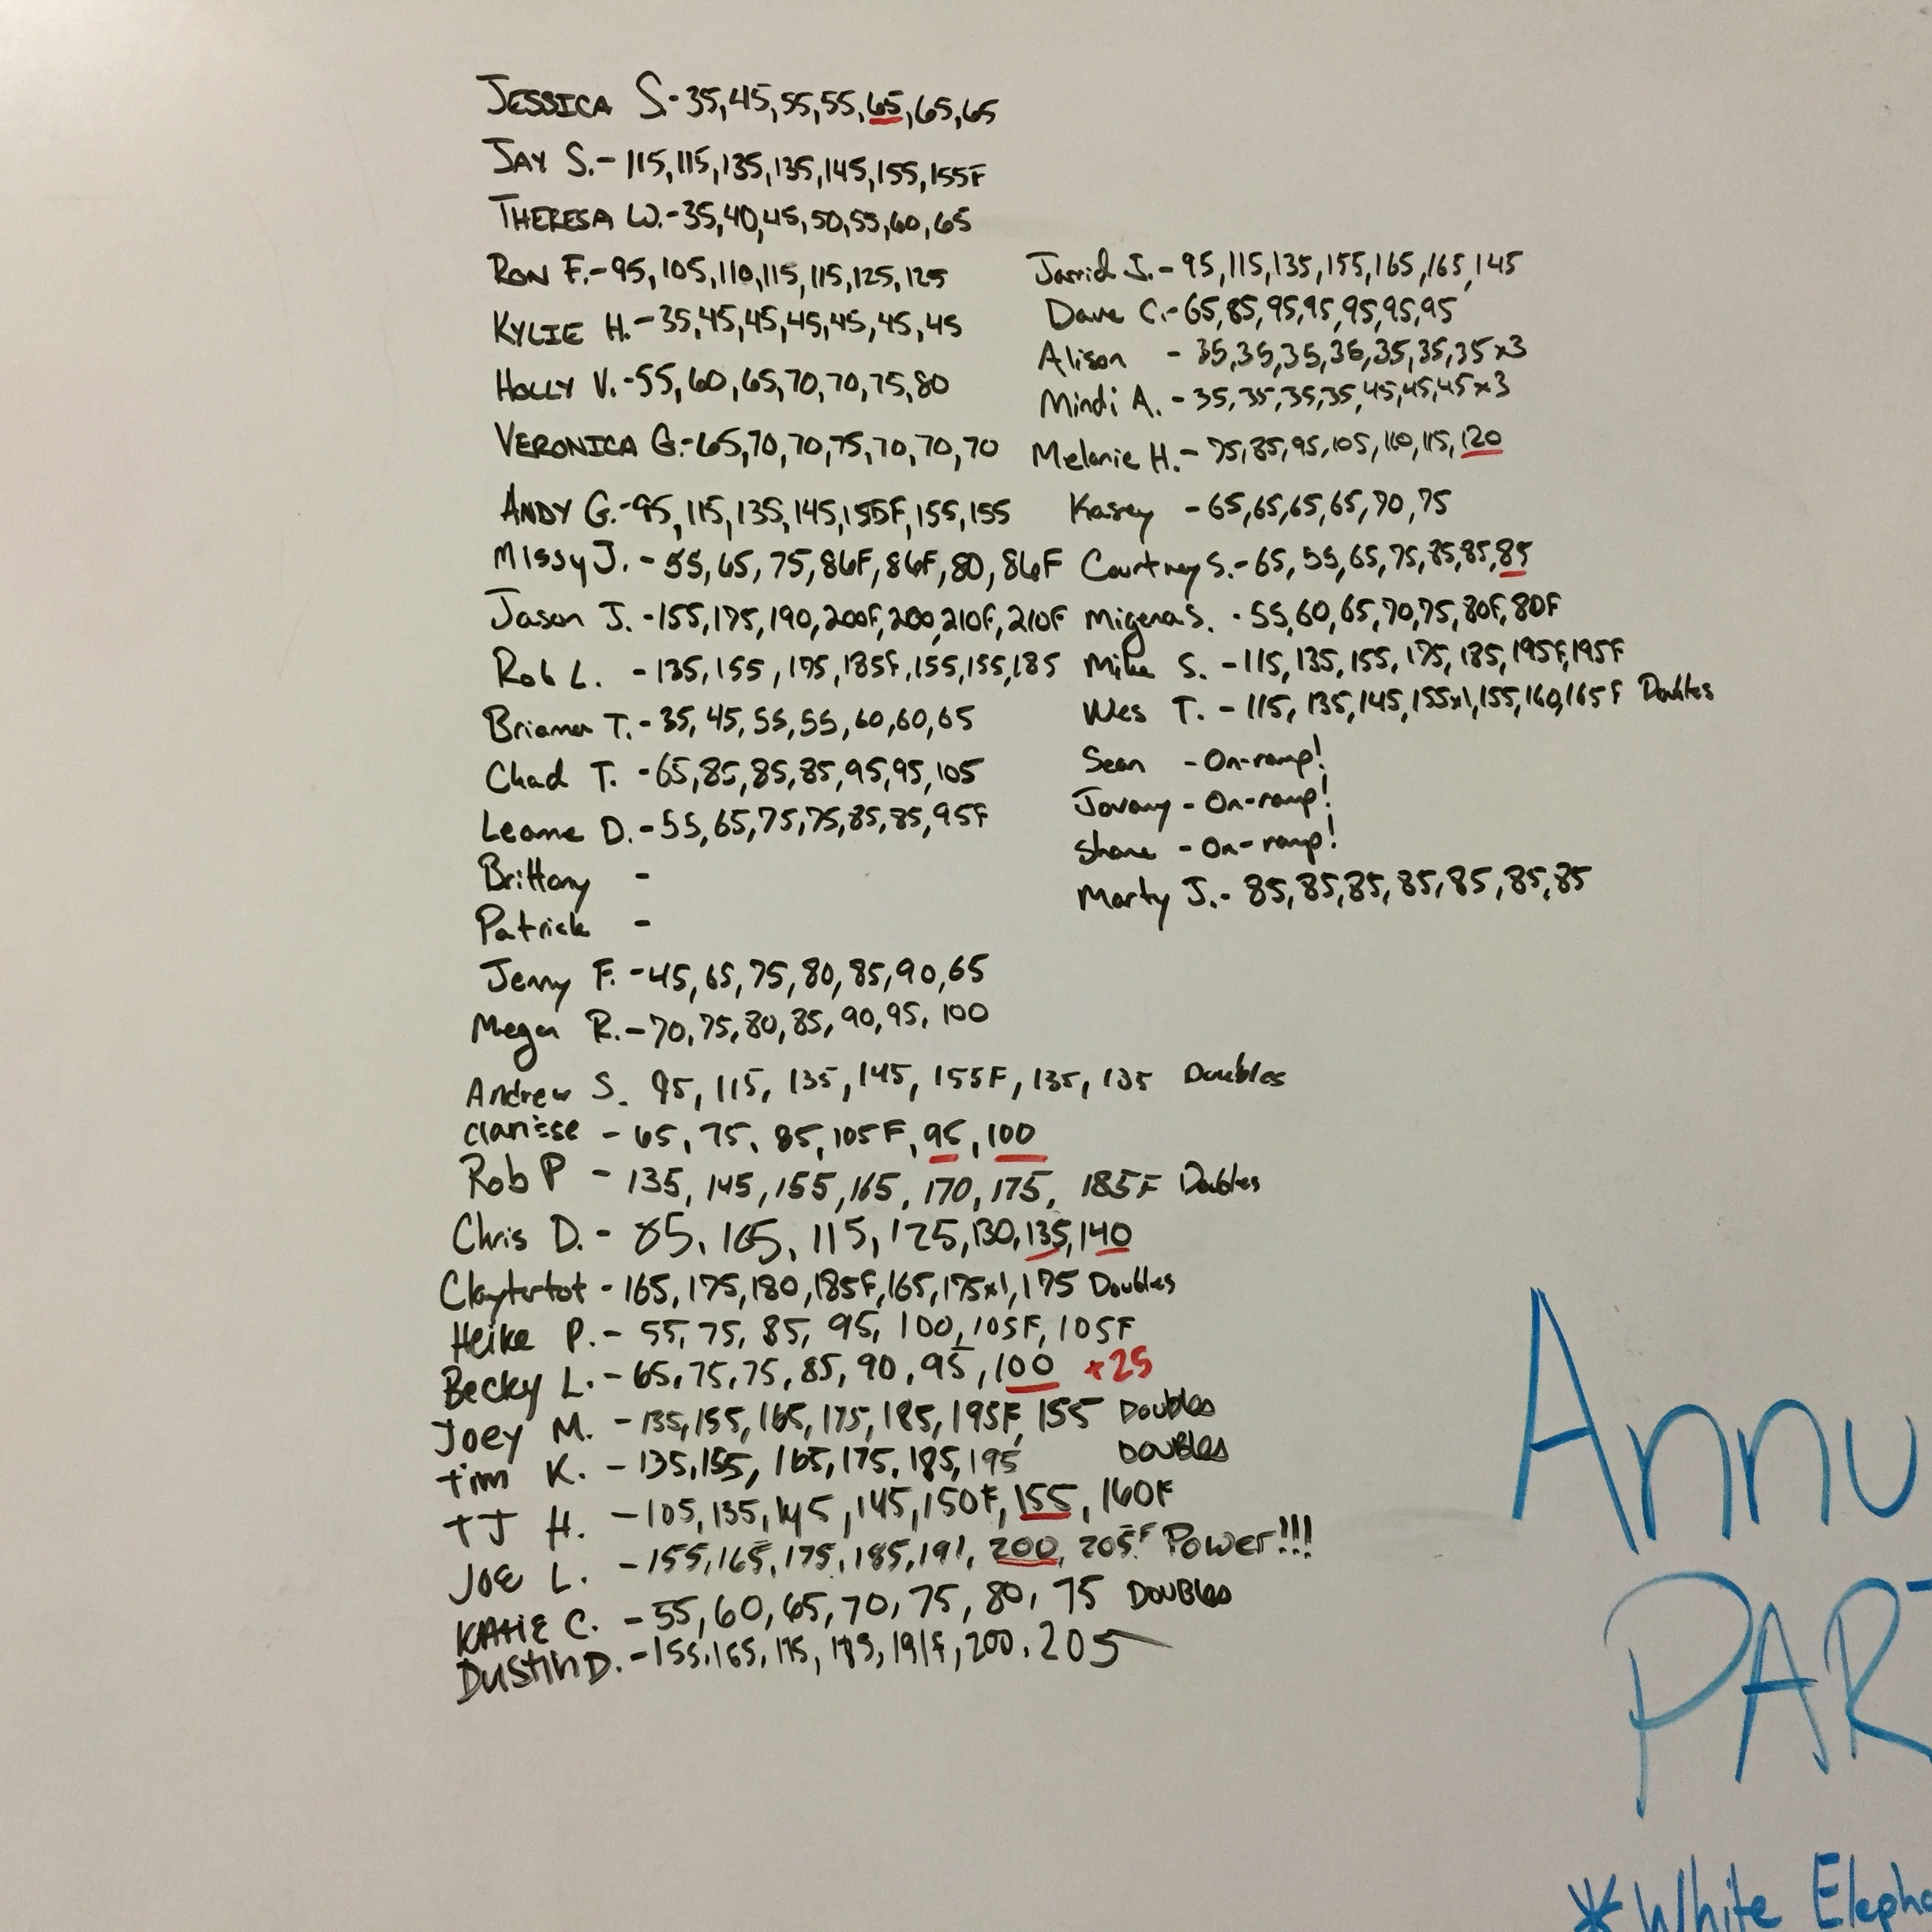 JESSICA S.-35,45,55,55,65,65,65
JAY S.-115,115,135,135,145,155,155F
THERESA W.-35,40,45,50,55,60,65
RON F.-95,105,110,115,115,125,125
KYLIE H.-35,45,45,45,45,45,45
HOLLY V.-55,60,65,70,70,75,80
VERONICA G.-65,70,70,75,70,70,70
ANDY G.-95,115,135,145,155F,155,155
Missy J.-55,65,75,86F,86F,80,86F
Jason J.-155,175,190,200F,200,210F,210F
Rob L. -135,155,175,185F,155,155,185
Briana T.-35,45,55,55,60,60,65
Chad T. -65,85,85,85,95,95,105
Leanne D.-55,65,75,75,85,85,95F
Brittany -
Patrick -
Jenny F.-45,65,75,80,85,90,65
Megan R.-70,75,80,85,90,95,100
Andrew S. 95,115,135,145,155F,135,135 Doubles
Clarisse -65,75,85,105F,95,100
Rob P -135,145,155,165,170,175,185F Doubles
Chris D.-85,105,115,125,130,135,140
Claytertot-165,175,180,185F,165,175x1,175 Doubles
Heike P.-55,75,85,95,100,105F,105F
Becky L.-65,75,75,85,90,95,100 +25
Joey M. -135,155,165,175,185,195F,155 Doubles
Tim K. -135,155,165,175,185,195 DOUBLES
TJ H. -105,135,145,145,150F,155,160F
JOE L. -155,165,175,185,191,200,205F Power!!!
KATIE C. -55,60,65,70,75,80,75 DOUBLES
DUSTIN D.-155,165,175,185,191F,200,205
Jarrid J.-95,115,135,155,165,165,145
Dave C.-65,85,95,95,95,95,95
Alison -35,35,35,35,35,35,35x3
Mindi A.-35,35,35,35,45,45,45x3
Melanie H.-75,85,95,105,110,115,120
Kasey -65,65,65,65,70,75
Courtney S.-65,55,65,75,85,85,85
Migena S. -55,60,65,70,75,80F,80F
Mike S. -115,135,155,175,185,195F,195F
Wes T. -115,135,145,155x1,155,160,165F Doubles
Sean -On-ramp!
Jovany -On-ramp!
Shane -On-ramp!
Marty J.-85,85,85,85,85,85,85
Annu
PAR
*White Eleph